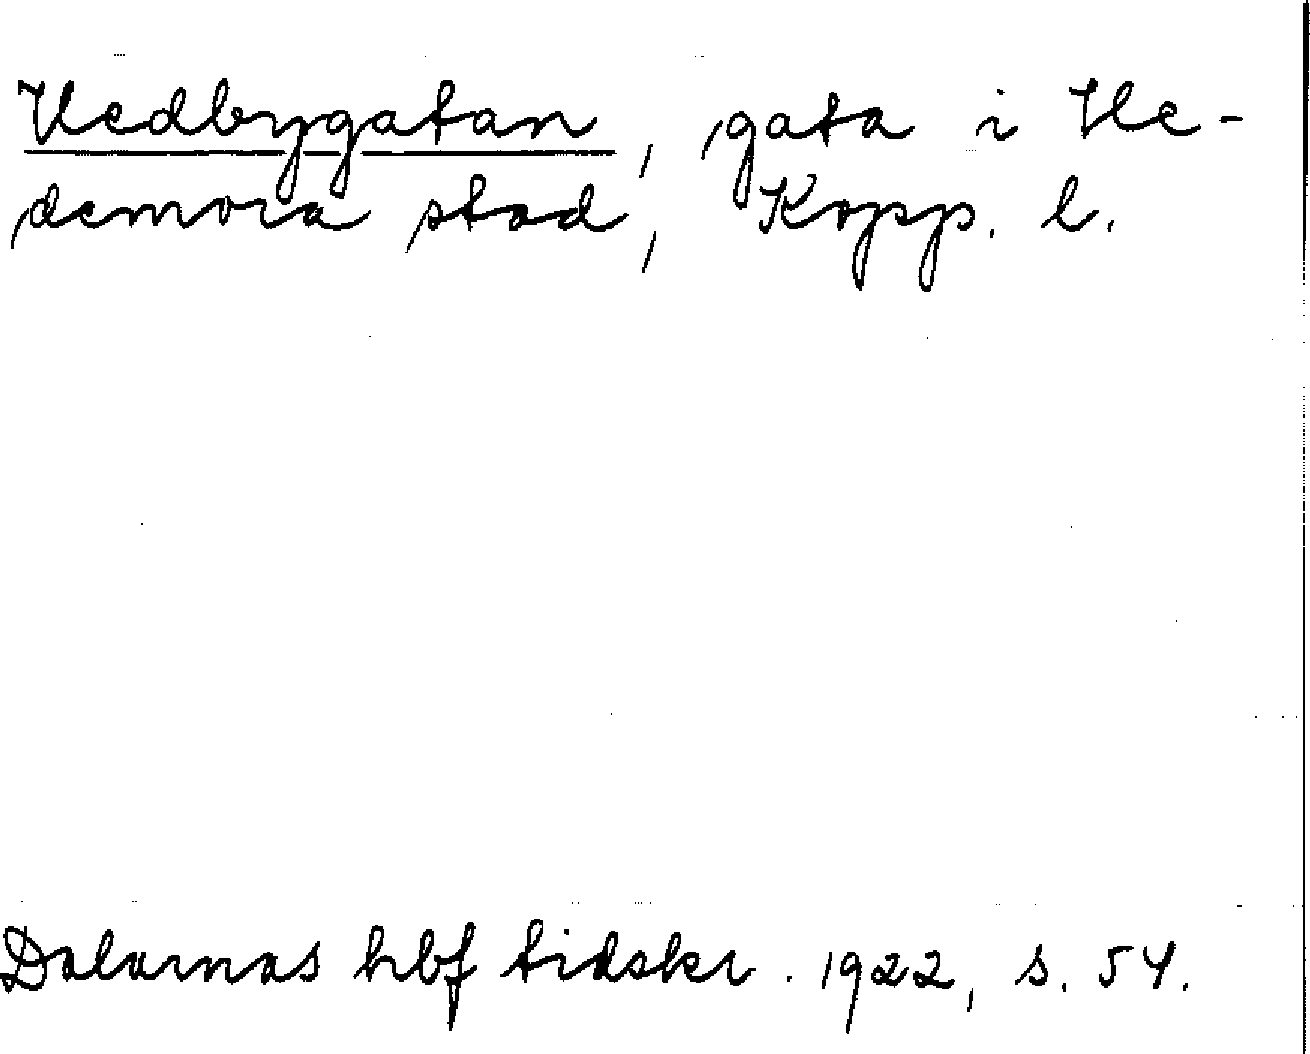 Vedbygatan, gata i He-
demora stad, Kopp. l.
Dalarnas hbf tidskr. 1922, s. 54.